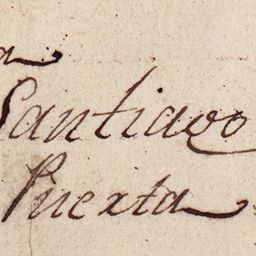 a
Santiago
Puerta